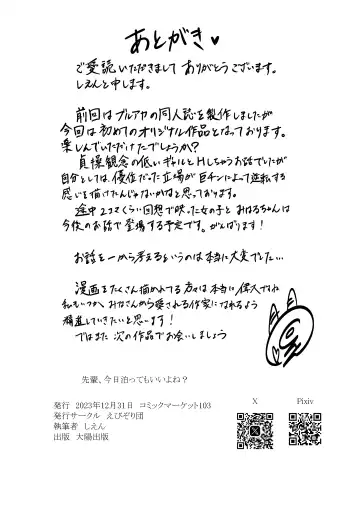 あとがき♥
ご愛読いただきまして ありがとうございます。
しえんと申します。
前回はブルアカの同人誌を製作しましたが
今回は初めてのオリジナル作品となっております。
楽しんでいただけたでしょうか?
貞操観念の低いギャルとHしちゃうお話でしたが
自分としては、優位だった立場が巨チンによって逆転する
感じを描けたんじゃないかなと思っております。
途中2コマくらい回想で映った女の子と みはるちゃんは
今後のお話で登場する予定です。がんばります!
お話を一から考えるというのは本当に大変でした…
漫画をたくさん描かれてる方々は本当に偉大ですね
私もいつか、みなさんから愛される作家になれるよう
精進していきたいと思います!
ではまた 次の作品でお会いしましょう
先輩、今日泊ってもいいよね?
X
Pixiv
発行 2023年12月31日 コミックマーケット103
発行サークル えびぞり団
執筆者 しえん
出版 大陽出版